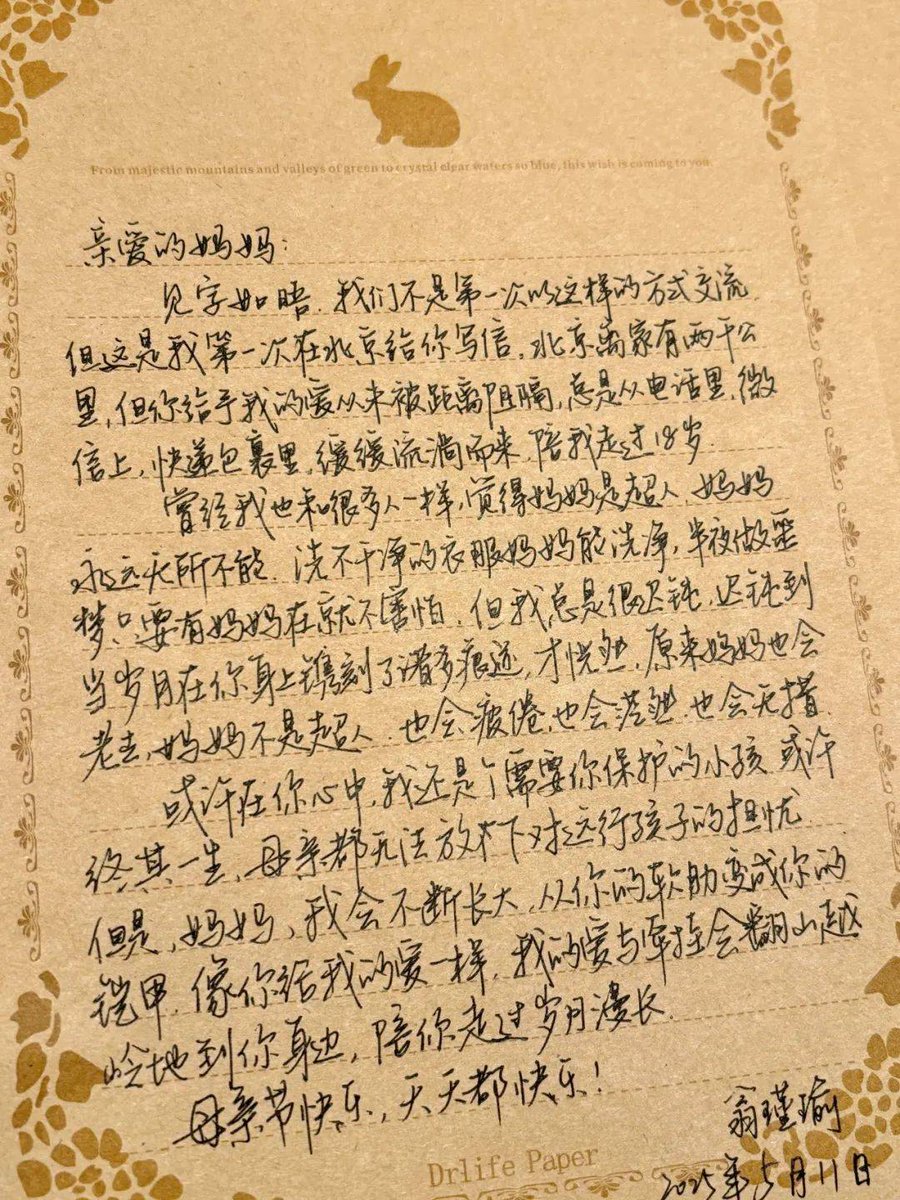 From majestic mountains and valleys of green to crystal clear waters so blue, this wish is coming to you.
亲爱的妈妈：
见字如晤.我们不是第一次以这样的方式交流
但这是我第一次在北京给你写信，北京离家有两千公
里，但你给予我的爱从未被距离阻隔，总是从电话里，微
信上，快递包裹里，缓缓流淌而来，陪我走过18岁.
曾经我也和很多人一样，觉得妈妈是超人，妈妈
永远无所不能.洗不干净的衣服妈妈能洗净，半夜做噩
梦只要有妈妈在就不害怕.但我总是很迟钝，迟钝到
当岁月在你身上镌刻了诸多痕迹，才恍然，原来妈妈也会
老去，妈妈不是超人.也会疲倦，也会茫然.也会无措.
或许在你心中，我还是个需要你保护的小孩.或许
终其一生，母亲都无法放下对远行孩子的担忧.
但是，妈妈，我会不断长大，从你的软肋变成你的
铠甲.像你给我的爱一样，我的爱与牵挂会翻山越
岭地到你身边，陪你走过岁月漫长.
母亲节快乐，天天都快乐！
翁瑾瑜
2025年5月11日
Drlife Paper